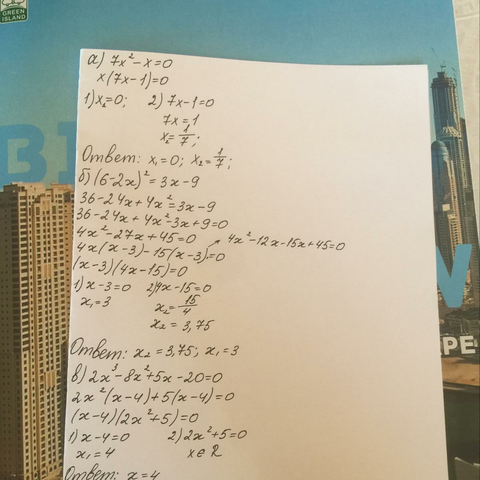 GREEN
ISLAND
а) 7x² - x = 0
x(7x-1)=0
1) x₁=0; 2) 7x-1=0
7x=1
x₂= 1/7;
Ответ: x₁=0; x₂= 1/7;
б) (6-2x)² = 3x-9
36-24x+4x²=3x-9
36-24x+4x²-3x+9=0
4x²-27x+45=0
4x²-12x-15x+45=0
4x(x-3)-15(x-3)=0
(x-3)(4x-15)=0
1) x-3=0 2) 4x-15=0
x₁=3 x₂= 15/4
x₂ = 3,75
Ответ: x₂=3,75; x₁=3
в) 2x³-8x²+5x-20=0
2x²(x-4)+5(x-4)=0
(x-4)(2x²+5)=0
1) x-4=0 2) 2x²+5=0
x₁=4 x∈R
Ответ: x=4